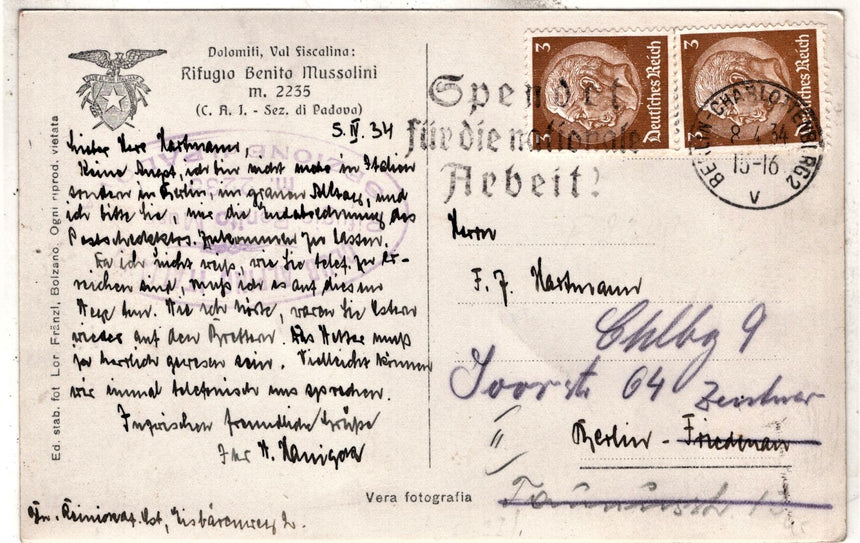 Dolomiti, Val Fiscalina:
Rifugio Benito Mussolini
m. 2235
(C. A. I. - Sez. di Padova)
5. IV. 34
Lieber Herr Hartmann,
Keine Angst, ich bin nicht mehr in Italien
sondern in Berlin, im grauen Alltag, und
ich bitte Sie, mir die Endabrechnung des
zukommen zu lassen.
Da ich nicht weiß, wie Sie telef. zu er-
reichen sind, muß ich es auf diesem
Wege tun. Wie ich hörte, waren Sie Ostern
wieder auf den Brettern. Das Wetter muß
ja herrlich gewesen sein. Vielleicht können
wir einmal telefonisch uns sprechen.
Inzwischen freundliche Grüße
Ihr
Eisbärenweg 2.
Ed. stab. fot Lor. Fränzl, Bolzano. Ogni riprod. vietata
Vera fotografia
3
Deutsches Reich
3
Deutsches Reich
Spendet
für die nationale
Arbeit!
BERLIN-CHARLOTTENBURG 2
8.4.34
15-16
v
Herrn
F. J. Hartmann
Chlbg 9
64
Berlin - Friedenau